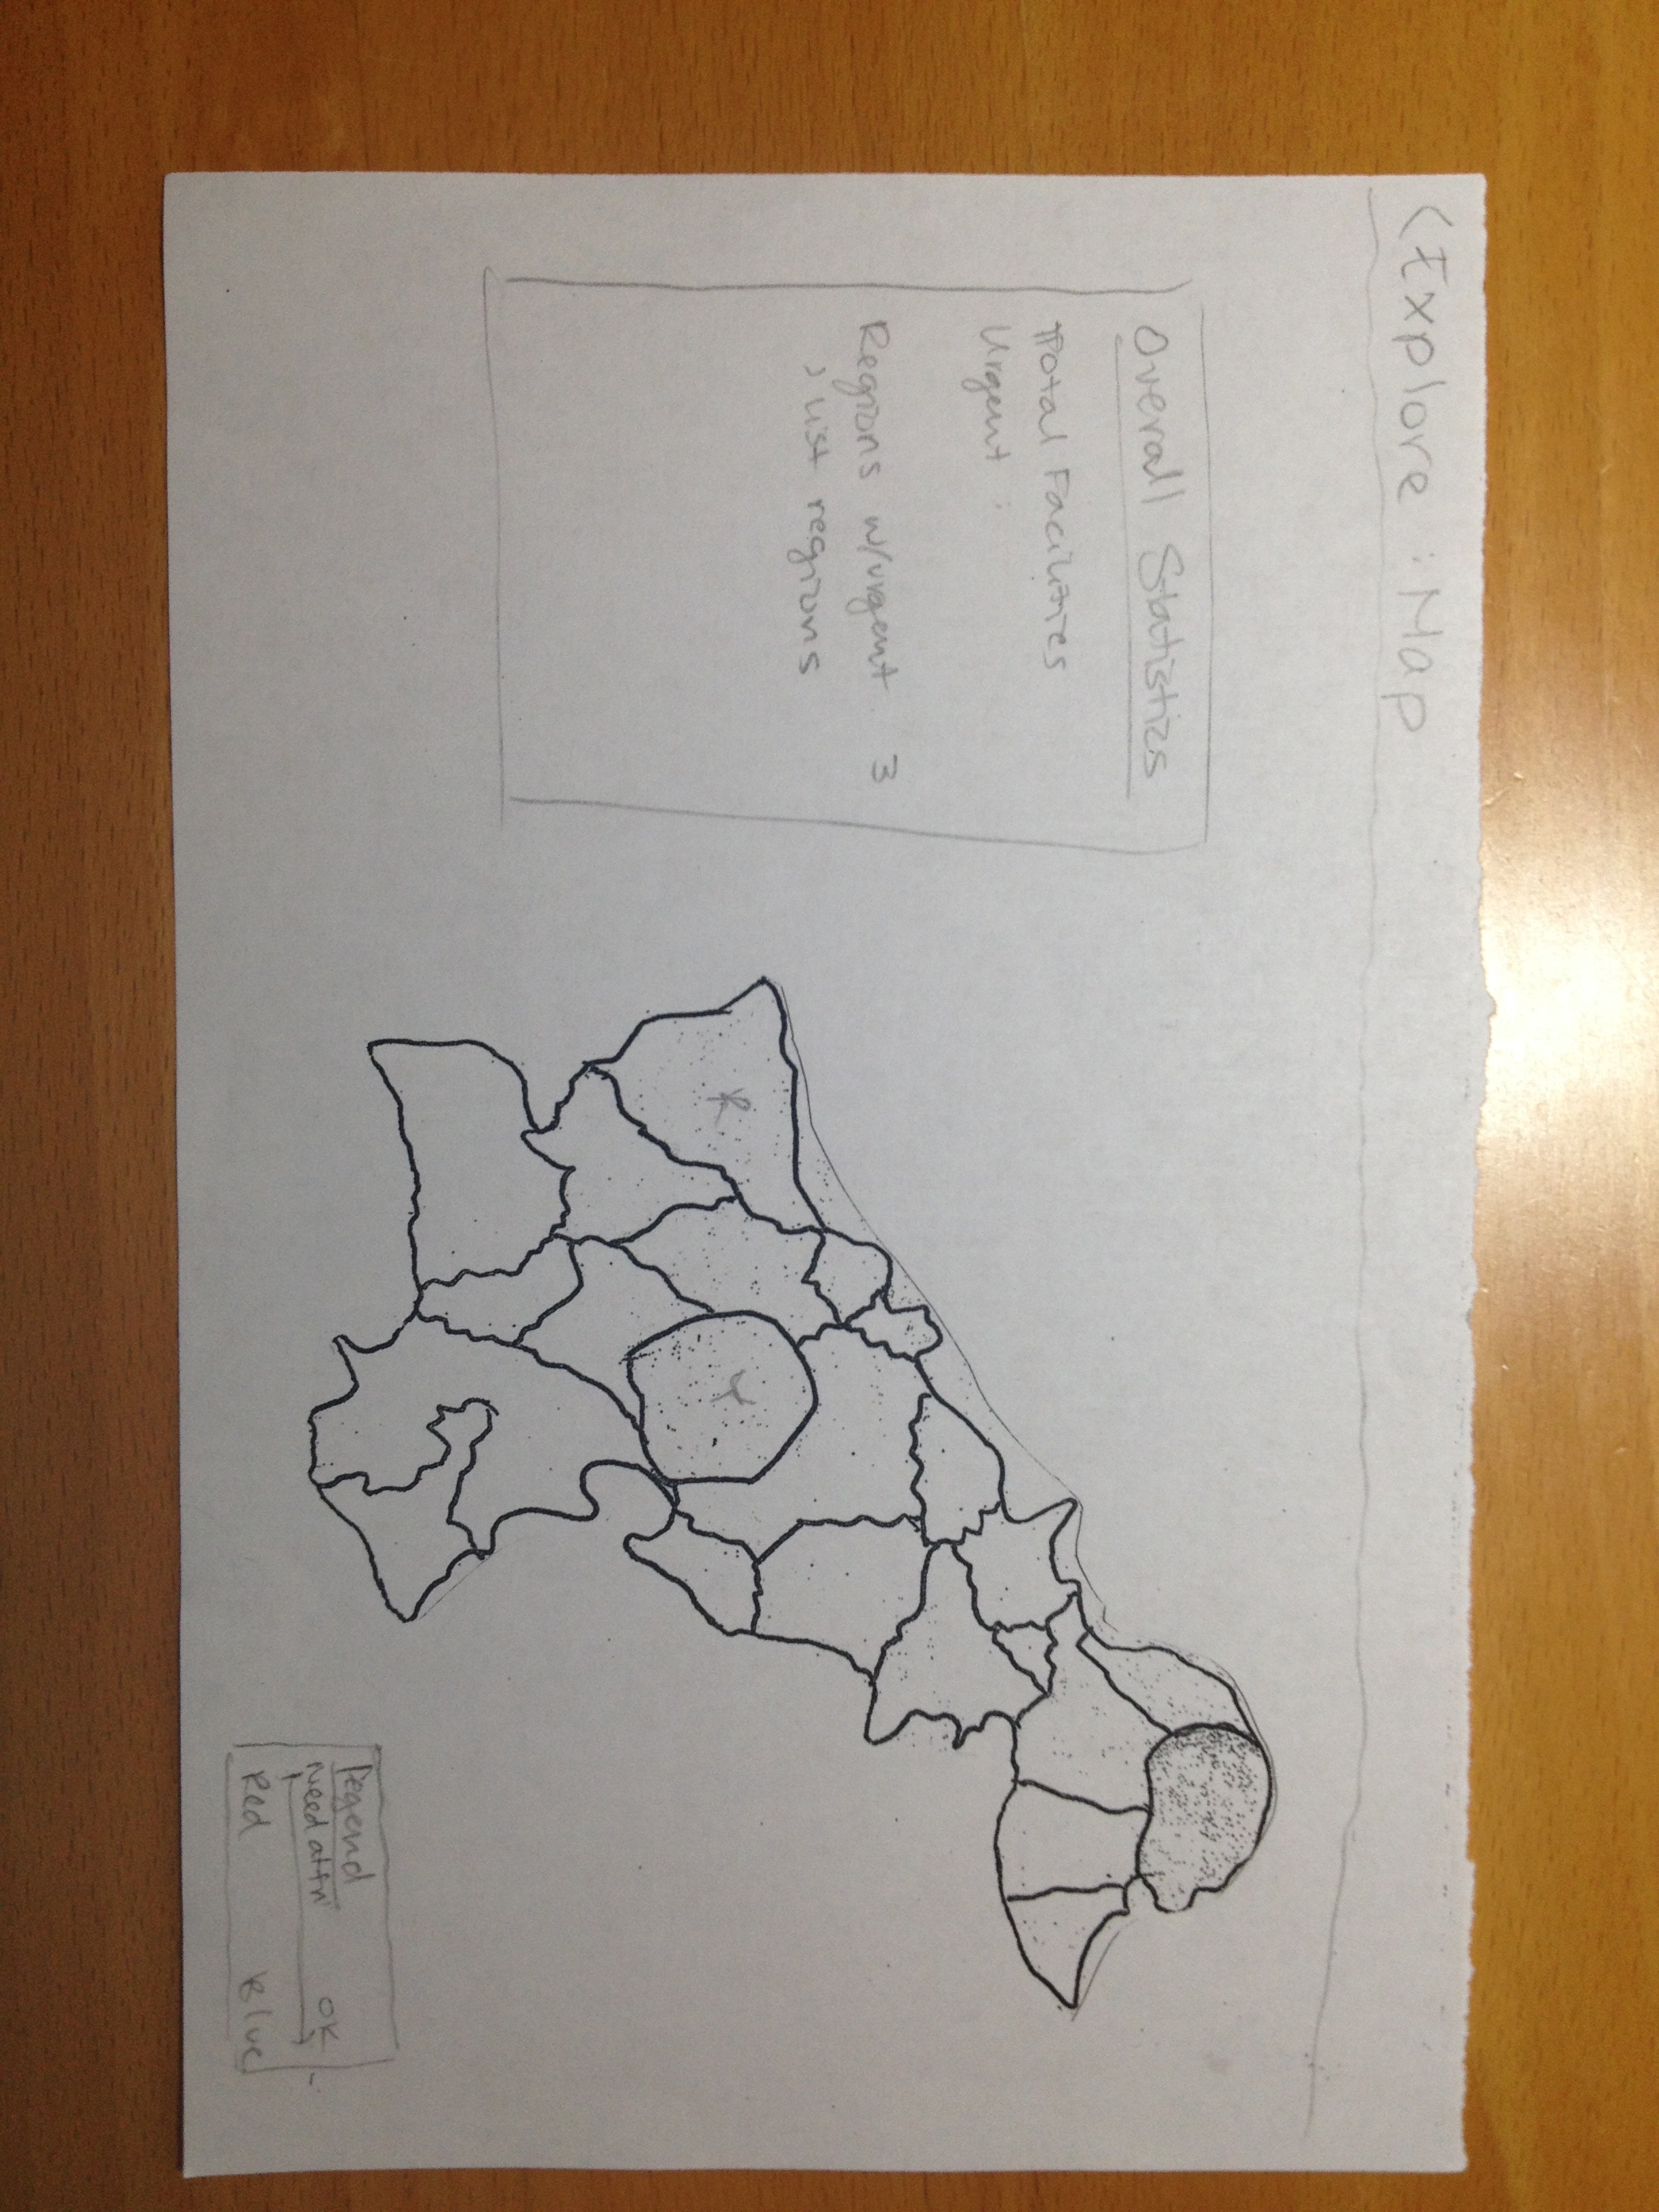 < Explore : Map
Overall Statistics
Total Facilities
Urgent :
Regions w/urgent 3
> list regions
R
Y
Legend
need attn OK
Red Blue